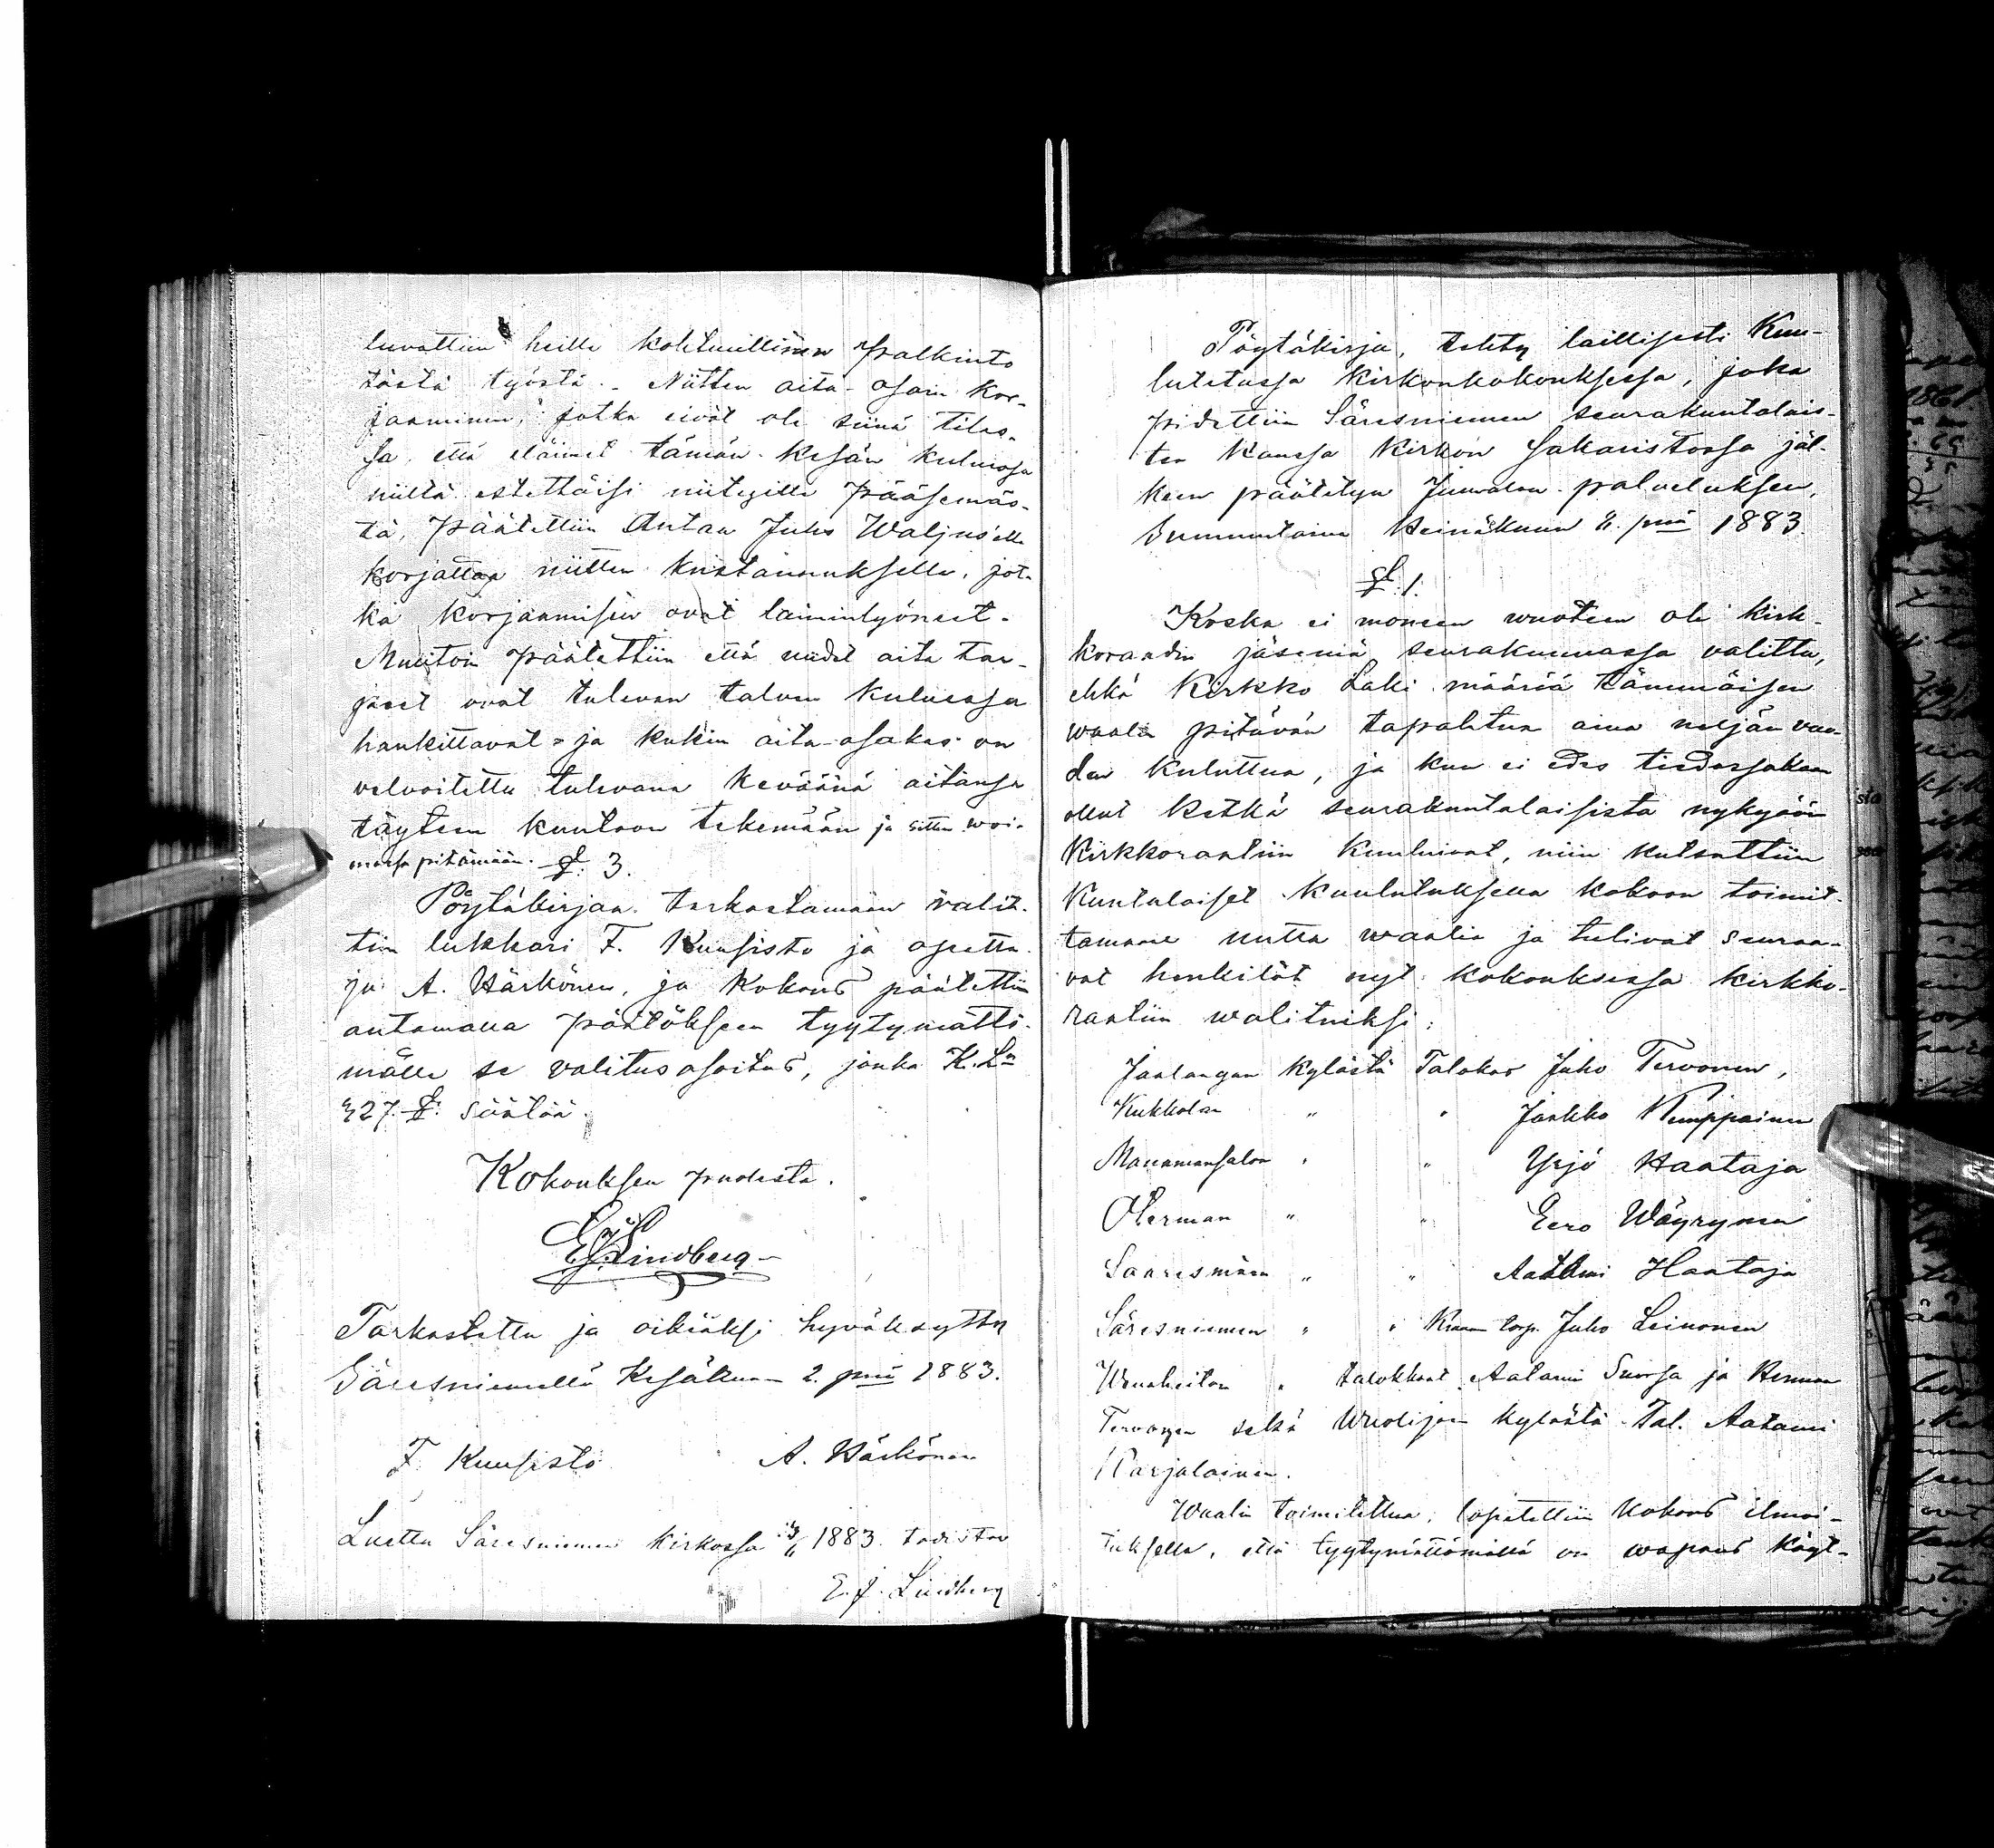 luvattiin heille kohtuullinen palkinto
tästä työstä. Niitten aita-osain kor-
jaaminen, jotka eivät ole siinä tilas-
sa että eläimet tämän kesän kuluessa
niiltä estettäisi niityille pääsemäs-
tä, päätettiin antaa Juho Waljus'elle
korjattaa niitten kustannuksella, jot-
ka korjaamisen ovat laiminlyöneet.
Muutoin päätettiin että uudet aita tar-
peet ovat tulevan talven kuluessa
hankittavat ja kukin aita-osakas on
velvoitettu tulevana keväänä aitansa
täyteen kuntoon tekemään ja sitten woi-
massa pitämään. §. 3.
Pöytäkirjaa tarkastamaan valit-
tiin lukkari F. Kuusisto ja opetta-
ja A. Härkönen, ja kokous päätettiin
antamalla päätökseen tyytymättö-
mälle se valitusosoitus, jonka K. Ln
27 §. säätää.
Kokouksen puolesta.
E. J. Lindberg
Tarkastettu ja oikiaksi hyväksytty
Säresniemellä Kesäkuun 2. pnä 1883.
F. Kuusisto A. Härkönen
Luettu Säresniemen kirkossa 3/6 1883 todistaa
E. J. Lindberg
Pöytäkirja, tehty laillisesti kuu-
lutetussa kirkonkokouksessa, joka
pidettiin Säresniemen seurakuntalais-
ten kanssa kirkon sakaristossa jäl-
keen päätetyn Jumalan-palveluksen,
Sunnuntaina Heinäkuun pnä 1883.
§. 1.
Koska ei moneen vuoteen ole kirk-
koraadin jäseniä seurakunnassa valittu,
ehkä Kirkko Laki määrää tämmöisen
waalin pitävän tapahtua aina neljän vuo-
den kuluttua, ja kun ei edes tiedossakaan
ollut ketkä seurakuntalaisista nykyään
kirkkoraatiin kuuluivat, niin kutsuttiin
kuntalaiset kuulutuksella kokoon toimit-
tamaan uutta waalia ja tulivat seuraa-
vat henkilöt nyt kokouksessa kirkko-
raatiin walituiksi:
Jaalangan kylästä Talokas Juho Tervonen,
Kukkolan " " Jaakko Kemppainen
Manamansalon " " Yrjö Haataja
Oterman " " Eero Wäyrynen
Saaresmäen " " Aatami Haataja
Säresniemen " " Kruun torp. Juho Leinonen
Wuoheiton " talokkaat Aatami Suorsa ja Herman
Tervonen sekä Wuolijoen kylästä Tal. Aatami
Karjalainen.
Waalin toimitettua, lopetettiin kokous ilmoi-
tuksella, että tyytymättömällä on wapaus käyt-